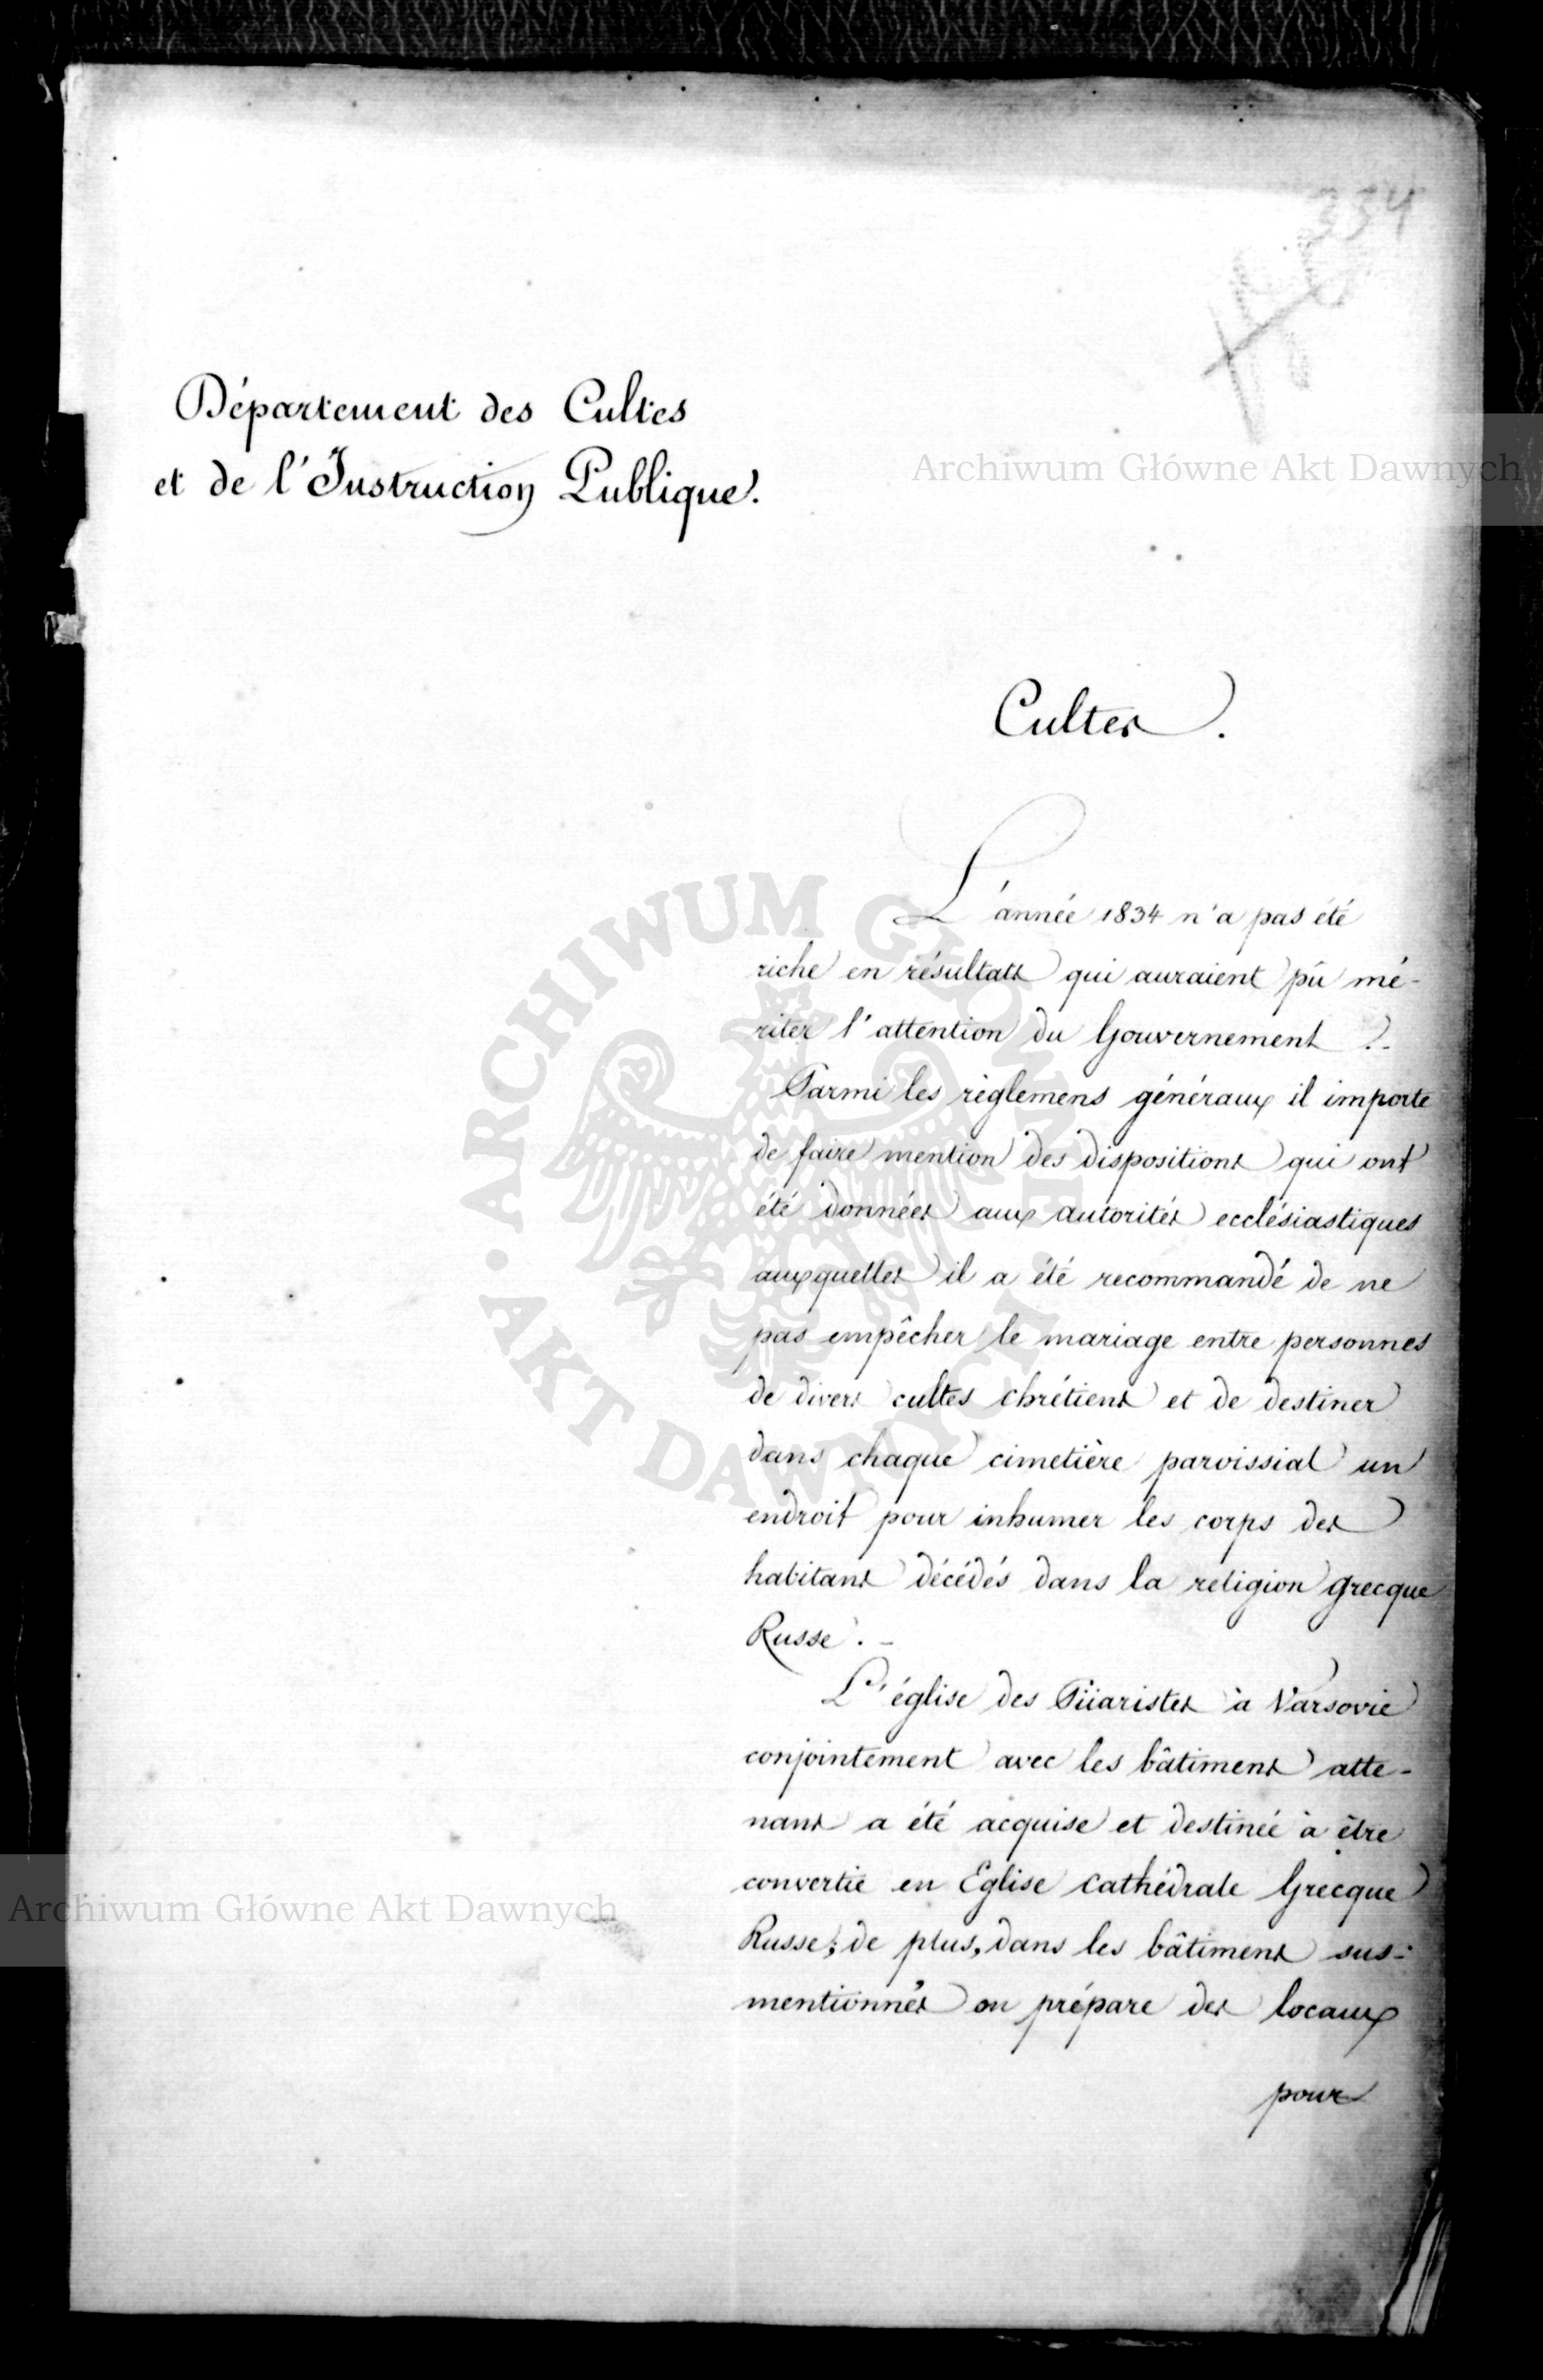 334
Département des Cultes
et de l'Instruction Publique.
Archiwum Główne Akt Dawnych
Cultes.
L'année 1834 n'a pas été
riche en résultats qui auraient pû mé-
riter l'attention du Gouvernement.-
Parmi les règlemens généraux il importe
de faire mention des dispositions qui ont
été données aux autorités ecclésiastiques
auxquelles il a été recommandé de ne
pas empêcher le mariage entre personnes
de divers cultes chrétiens et de destiner
dans chaque cimetière paroissial un
endroit pour inhumer les corps des
habitans décédés dans la religion grecque
Russe.-
L'église des Piiaristes à Varsovie
conjointement avec les bâtimens atte-
nans a été acquise et destinée à être
convertie en Eglise Cathédrale Grecque
Russe; de plus, dans les bâtimens sus-
mentionnés on prépare des locaux
pour
ARCHIWUM GŁÓWNE • AKT DAWNYCH •
Archiwum Główne Akt Dawnych